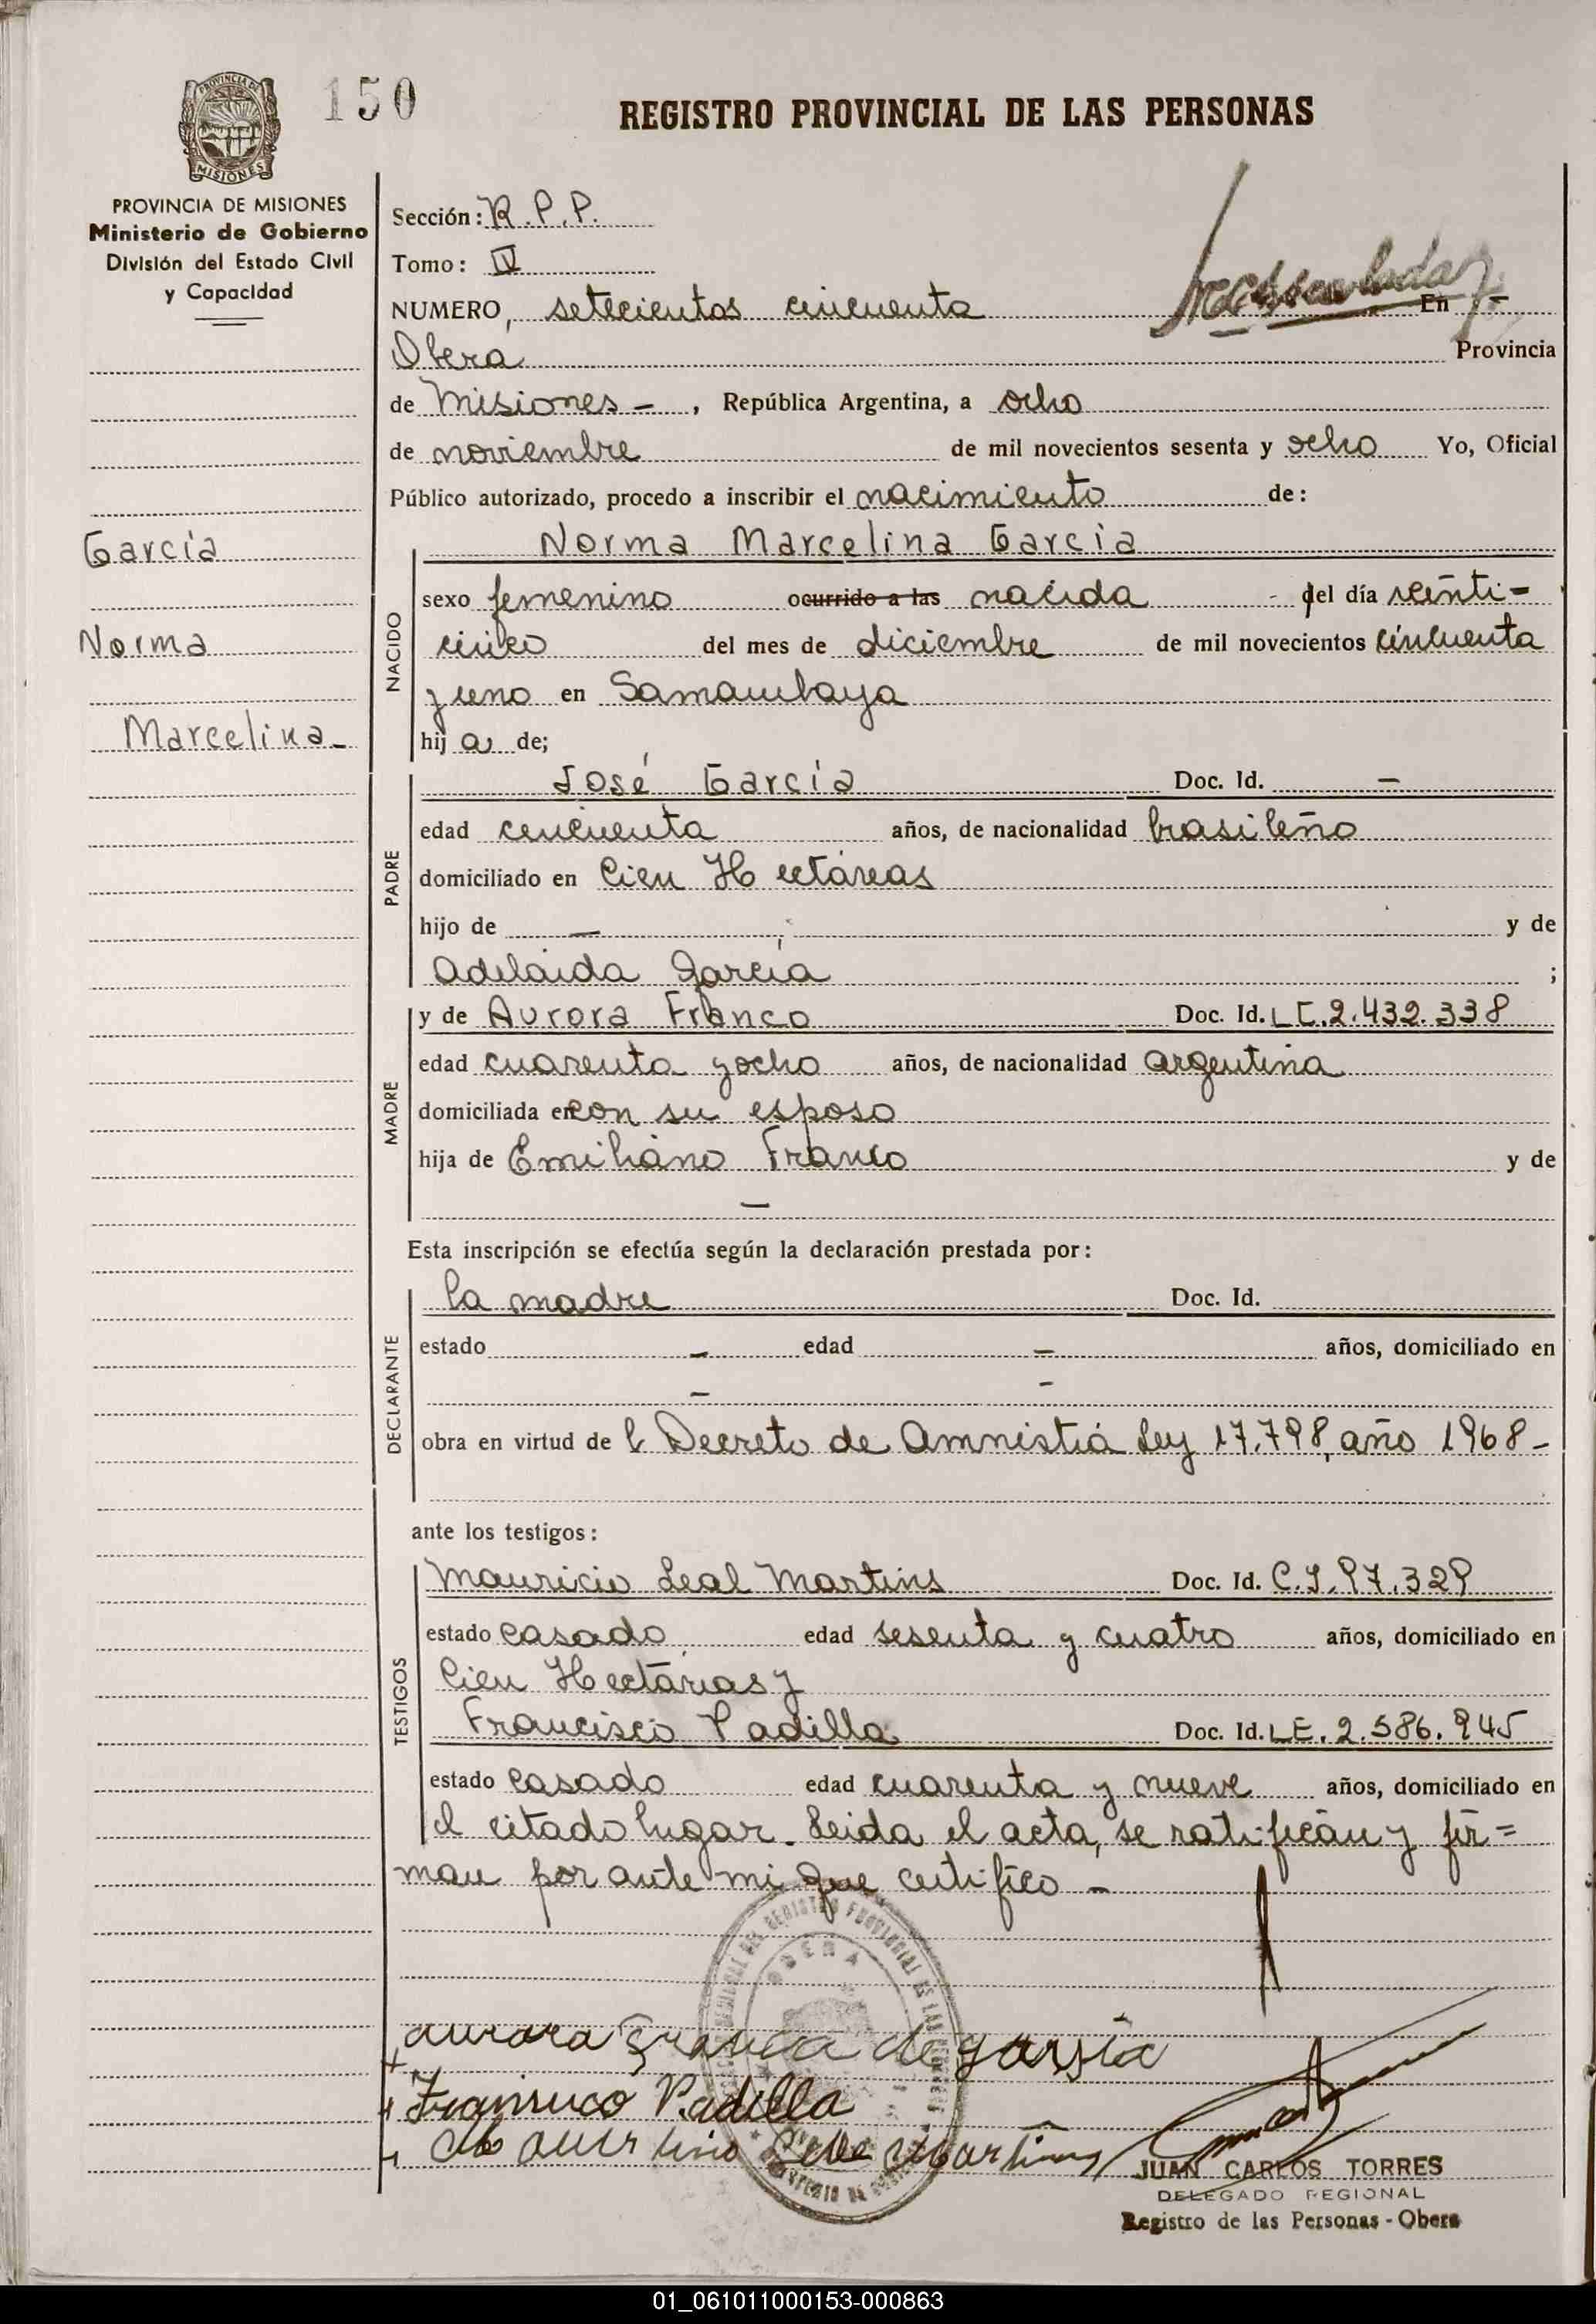 150
REGISTRO PROVINCIAL DE LAS PERSONAS
PROVINCIA DE
MISIONES
PROVINCIA DE MISIONES
Ministerio de Gobierno
División del Estado Civil
y Capacidad
García
Norma
Marcelina
Sección: R.P.P.
Tomo: IV
NUMERO, setecientos cincuenta En
Obera Provincia
de Misiones - , República Argentina, a ocho
de noviembre de mil novecientos sesenta y ocho Yo, Oficial
Público autorizado, procedo a inscribir el nacimiento de:
NACIDO
Norma Marcelina García
sexo femenino ocurrido a las nacida - del día veinti=
cinco del mes de diciembre de mil novecientos cincuenta
y uno en Samambaya
hij a de;
PADRE
José García Doc. Id. -
edad cincuenta años, de nacionalidad brasileño
domiciliado en Cien Hectáreas
hijo de - y de
Adelaida García ;
MADRE
y de Aurora Franco Doc. Id. LC.2.432.338
edad cuarenta y ocho años, de nacionalidad argentina
domiciliada en con su esposo
hija de Emiliano Franco y de
-
Esta inscripción se efectúa según la declaración prestada por:
DECLARANTE
la madre Doc. Id.
estado - edad - años, domiciliado en
- -
obra en virtud de l Decreto de Amnistía Ley 17.798, año 1968-
ante los testigos:
TESTIGOS
Mauricio Leal Martins Doc. Id. C.I.97.329
estado casado edad sesenta y cuatro años, domiciliado en
Cien Hectáreas y
Francisco Padilla Doc. Id. LE.2.586.945
estado casado edad cuarenta y nueve años, domiciliado en
el citado lugar. Leida el acta, se ratifican y fir=
man por ante mi que certifico -
OBERA
aurora franca de garsia
Francisco Padilla
JUAN CARLOS TORRES
DELEGADO REGIONAL
Registro de las Personas - Obera
01_061011000153-000863